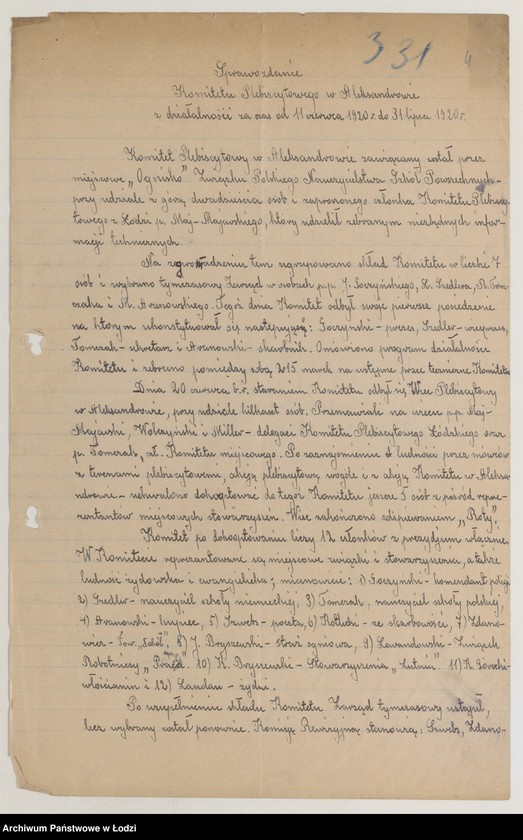 331
4
Sprawozdanie
Komitetu Plebiscytowego w Aleksandrowie
z działalności za czas od 11 czerwca 1920 r. do 31 lipca 1920 r.
Komitet Plebiscytowy w Aleksandrowie zawiązany został przez
miejscowe „Ognisko" Związku Polskiego Nauczycielstwa Szkół Powszechnych
przy udziale z górą dwadzieścia osób i zaproszonego członka Komitetu Plebiscy-
towego z Łodzi p. Maj-Majewskiego, który udzielił zebranym niezbędnych infor-
macji technicznych.
Na zgromadzeniu tem ugrupowano skład Komitetu w liczbie 7
osób i wybrano tymczasowy Zarząd w osobach p.p. J. Soczyńskiego, K. Szedlera, St. Tom-
czaka i M. Aranowskiego. Tegoż dnia Komitet odbył swoje pierwsze posiedzenie
na którym ukonstytuował się następująco: Soczyński - prezes, Szedler - wiceprezes,
Tomczak - sekretarz i Aranowski - skarbnik. Omówiono program działalności
Komitetu i zebrano pomiędzy sobą 215 marek na wstępne prace Komitetu
Dnia 20 czerwca b.r. staraniem Komitetu odbył się Wiec Plebiscytowy
w Aleksandrowie, przy udziale kilkuset osób. Przemawiali na wiecu p.p. Maj-
Majewski, Wolczyński i Miller - delegaci Komitetu Plebiscytowego Łódzkiego oraz
p. Tomczak, czł. Komitetu miejscowego. Po zaznajomieniu ludności przez mówców
z terenami plebiscytowemi, akcją plebiscytową wogóle i z akcją Komitetu w Aleksa-
ndrowie - uchwalono dokooptować do tegoż Komitetu jeszcze 5 osób z pośród repre-
zentantów miejscowych stowarzyszeń. Wiec zakończono odśpiewaniem „Roty".
Komitet po dokooptowaniu liczy 12 członków z prezydjum włącznie.
W Komitecie reprezentowane są miejscowe związki i stowarzyszenia, a także
ludność żydowska i ewangelicka; mianowicie: 1) Soczyński - komendant policji
2) Szedler - nauczyciel szkoły niemieckiej, 3) Tomczak, nauczyciel szkoły polskiej,
4) Aranowski - kupiec, 5) Szwebs - poczta, 6) Kotlicki - ze skarbowości, 7) Zdano-
wicz - Tow. „Sokół", 8) J. Bryszewski - straż ogniowa, 9) Lewandowski - Związek
Robotniczy „Praca" 10) K. Bryszewski - Stowarzyszenia „Lutnia" 11) K.
włościanin i 12) Landau - żydzi.
Po uzupełnieniu składu Komitetu Zarząd tymczasowy ustąpił,
lecz wybrany został ponownie. Komisję Rewizyjną stanowią: Szwebs, Zdano-
Archiwum Państwowe w Łodzi